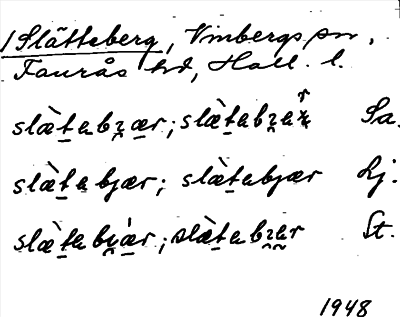 /Slätteberg, Vinbergs sn,
Faurås hd, Hall. l.
slæ̀t̠abʐæ̠r; slæ̀t̠abʐar Sa.
slæ̀t̠a̠bjær; slæ̀t̠abjær Lj.
slæ̀t̠abʐæ̠r; slæ̀t̠abʐa̠r St.
1948